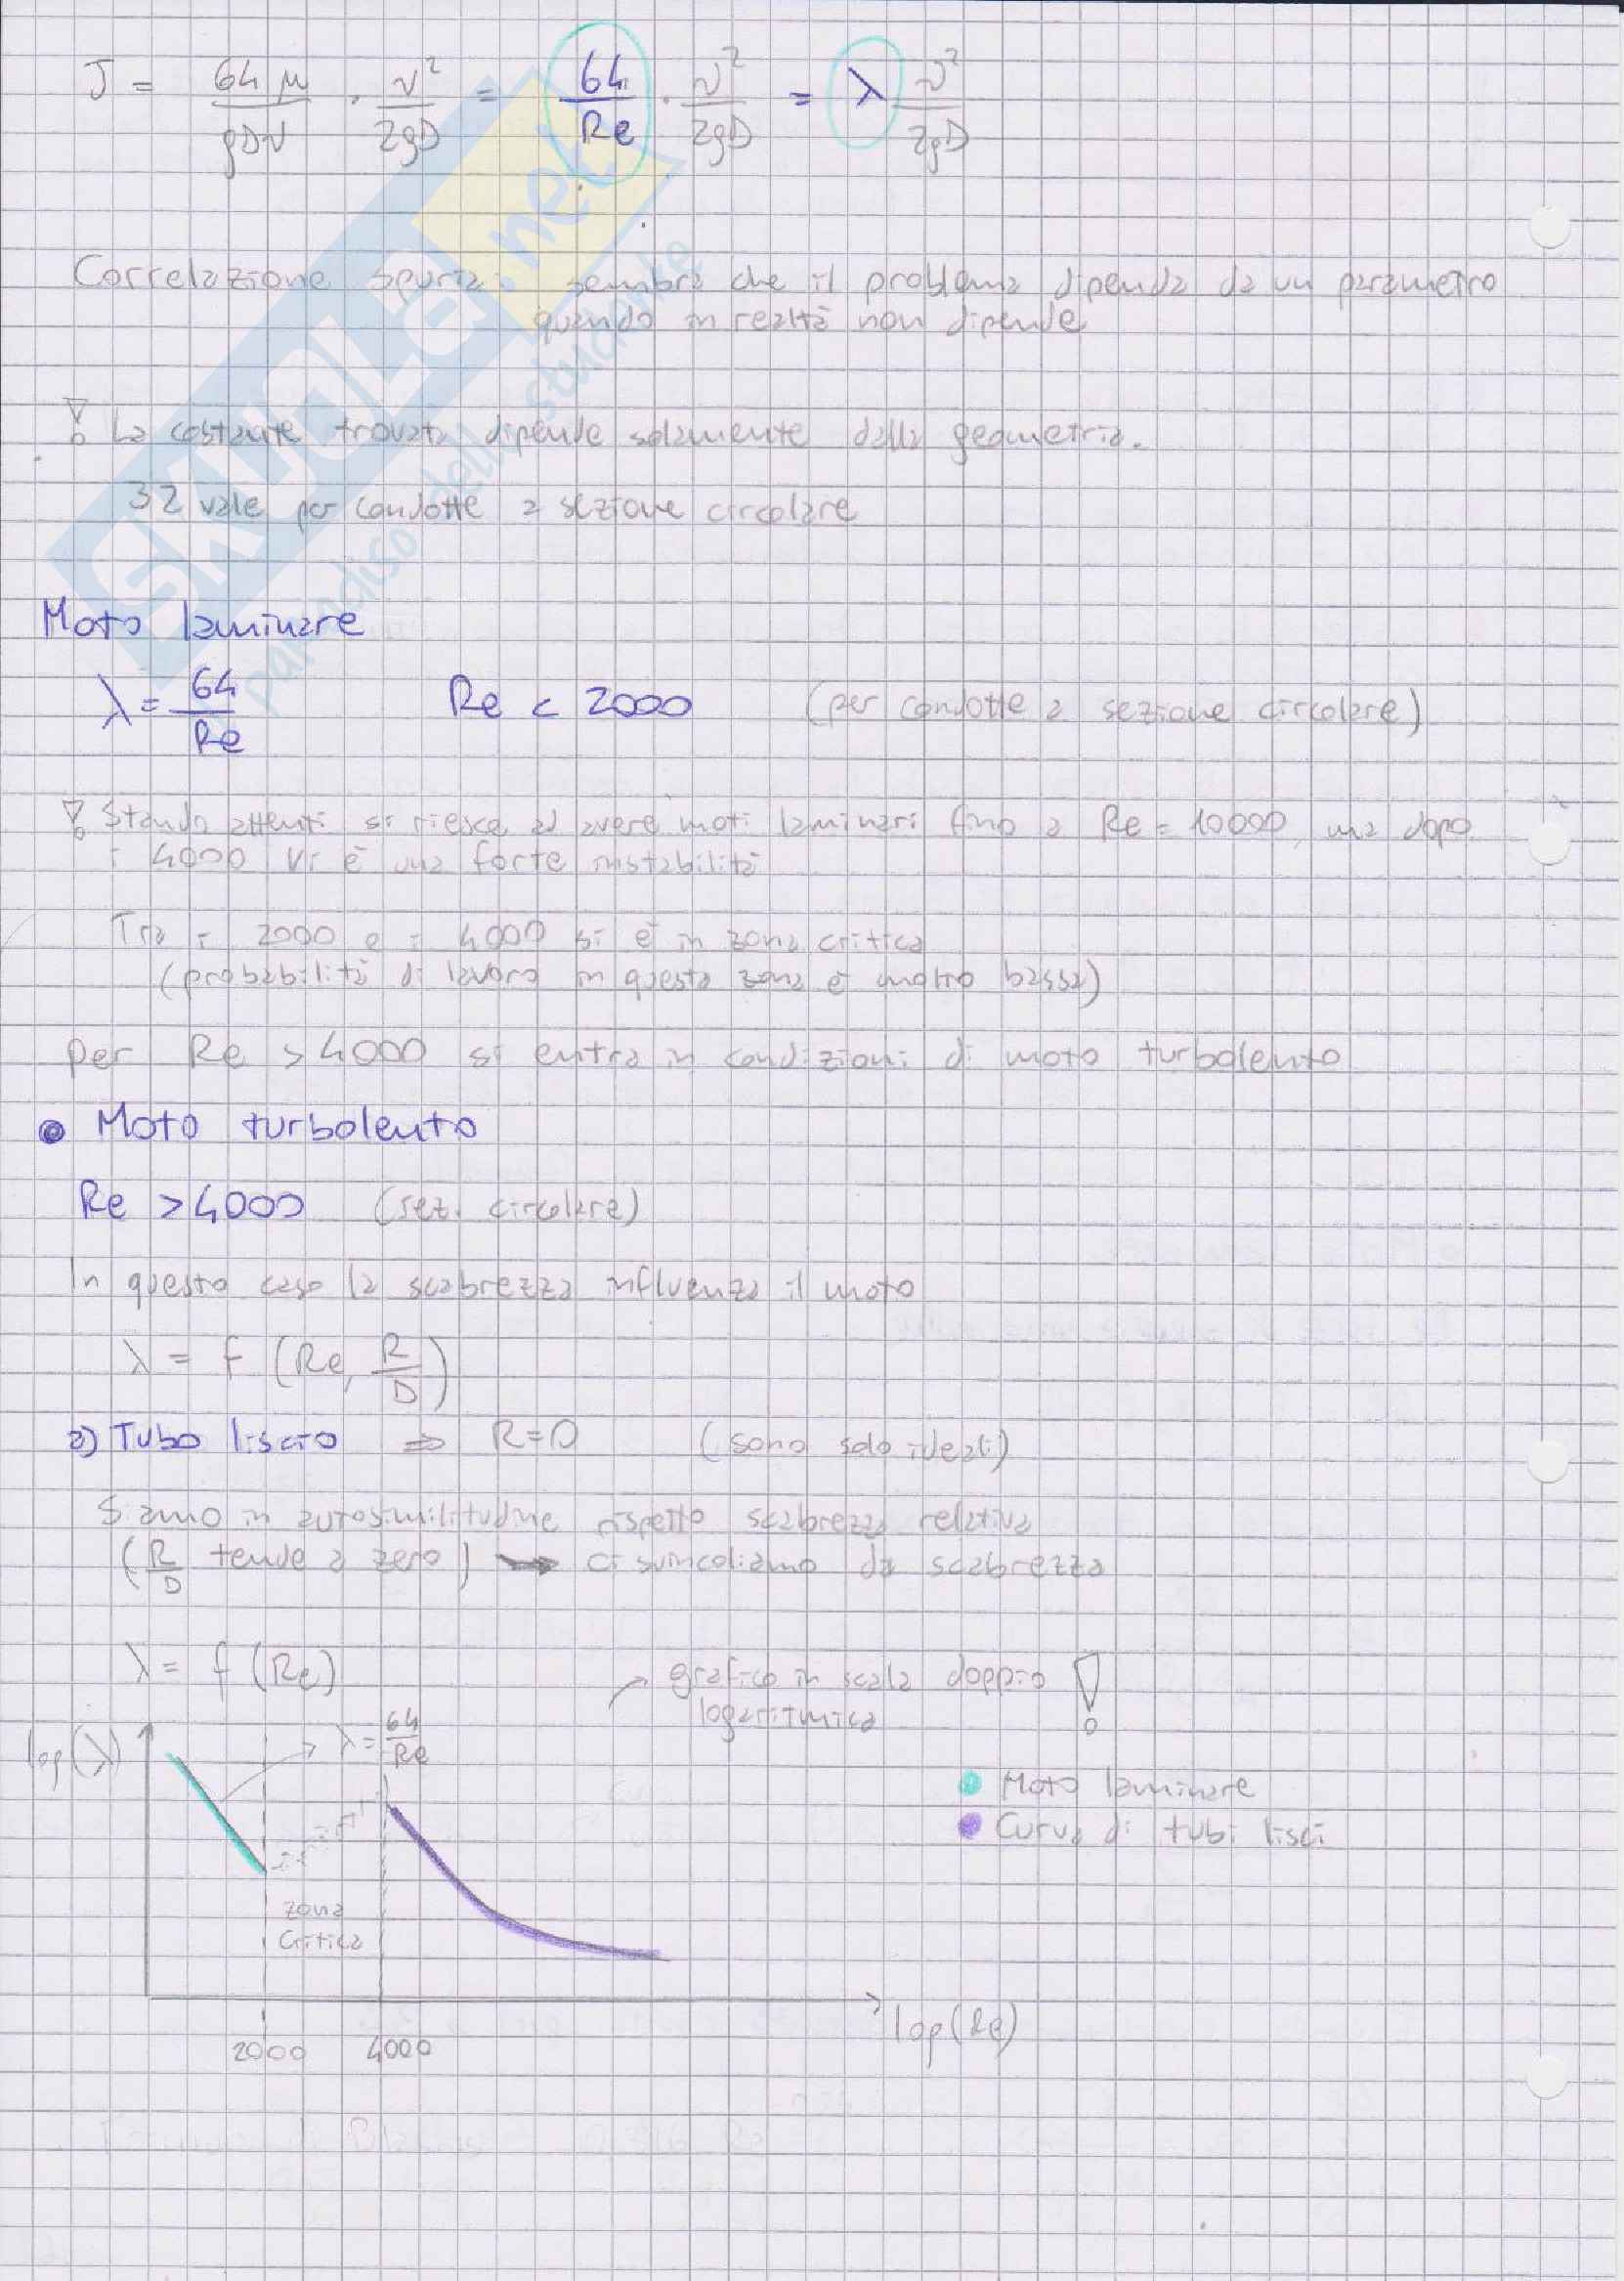 J = 64 μ / ρDv · v² / 2gD = 64 / Re · v² / 2gD = λ v² / 2gD
Correlazione spuria: sembra che il problema dipenda da un parametro
quando in realtà non dipende
La costante trovata dipende solamente dalla geometria.
32 vale per condotte a sezione circolare
Moto laminare
λ = 64 / Re Re < 2000 (per condotte a sezione circolare)
Stando attenti si riesce ad avere moti laminari fino a Re = 10000, ma dopo
i 4000 vi è una forte instabilità
Tra i 2000 e i 4000 si è in zona critica
(probabilità di lavoro in questa zona è molto bassa)
per Re > 4000 si entra in condizioni di moto turbolento
• Moto turbolento
Re > 4000 (sez. circolare)
In questo caso la scabrezza influenza il moto
λ = f (Re, R/D)
a) Tubo liscio ⇒ R=0 (sono solo ideali)
Siamo in autosimilitudine rispetto scabrezza relativa
(R/D tende a zero) → ci svincoliamo da scabrezza
λ = f (Re)
→ grafico in scala doppio
logaritmica
!
log(λ)
λ = 64 / Re
Moto laminare
Curva di tubi lisci
zona
critica
log(Re)
2000 4000
SKUOLA.net
il paradiso dello studente